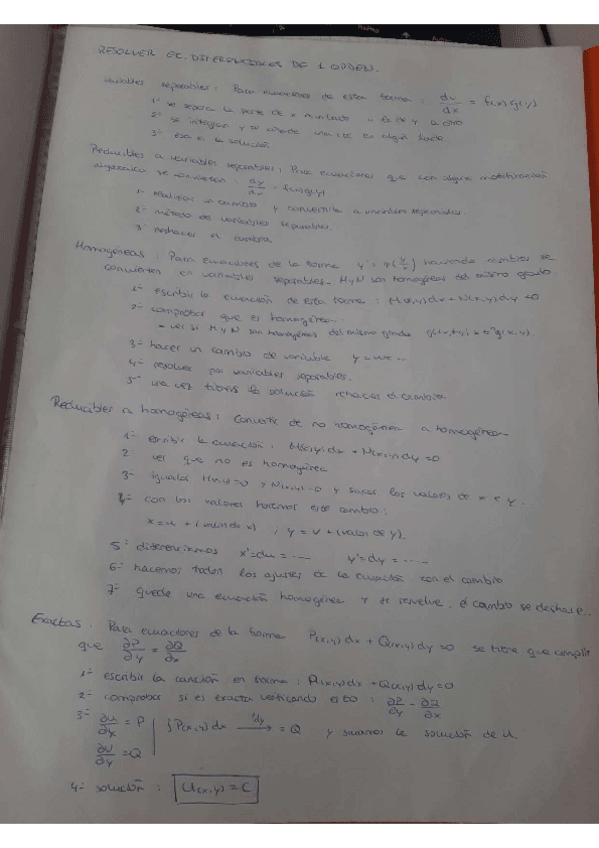 RESOLVER EC. DIFERENCIALES DE 1 ORDEN.
Variables separables: Para ecuaciones de esta forma: dy/dx = f(x)·g(y)
1- se separa la parte de x a un lado y la de y a otro
2- se integran y se añade una cte en algún lado.
3- esa es la solución
Reducibles a variables separables: Para ecuaciones que con alguna
algebraica se convierten: dy/dx = f(x)·g(y)
1- Realizar un cambio y convertirla a variables separables.
2- método de variables separables.
3- deshacer el cambio
Homogéneas: Para ecuaciones de la forma y' = (y/x) haciendo cambios se
convierten en variables separables. M y N son homogéneas del mismo grado
1- escribir la ecuación de esta forma: M(x,y)dx + N(x,y)dy = 0
2- comprobar que es homogénea.
- ver si M y N son homogéneas del mismo grado g(tx,ty) = tⁿg(x,y).
3- hacer un cambio de variable y = ux
4- resolver por variables separables.
5- una vez la solución el cambio
Reducibles a homogéneas: Convertir de no homogénea a homogénea
1- escribir la ecuación: M(x,y)dx + N(x,y)dy = 0
2- ver que no es homogénea
3- igualar M(x,y)=0 y N(x,y)=0 y sacar los valores de x e y.
4- con los valores hacemos este cambio:
x = u + (valor de x) ; y = v + (valor de y).
5- diferenciamos x'=du = ---- y'=dy = ----
6- hacemos todos los ajustes de la ecuación con el cambio
7- queda una ecuación homogénea y se resuelve. el cambio se deshace.
Exactas: Para ecuaciones de la forma P(x,y)dx + Q(x,y)dy = 0 se tiene que cumplir
que ∂P/∂y = ∂Q/∂x
1- escribir la ecuación en forma: P(x,y)dx + Q(x,y)dy = 0
2- comprobar si es exacta verificando esto: ∂P/∂y = ∂Q/∂x
3- ∂U/∂x = P | ∫P(x,y)dx → 'dy = Q y sacamos la solución de U.
∂U/∂y = Q
4- solución: U(x,y) = C